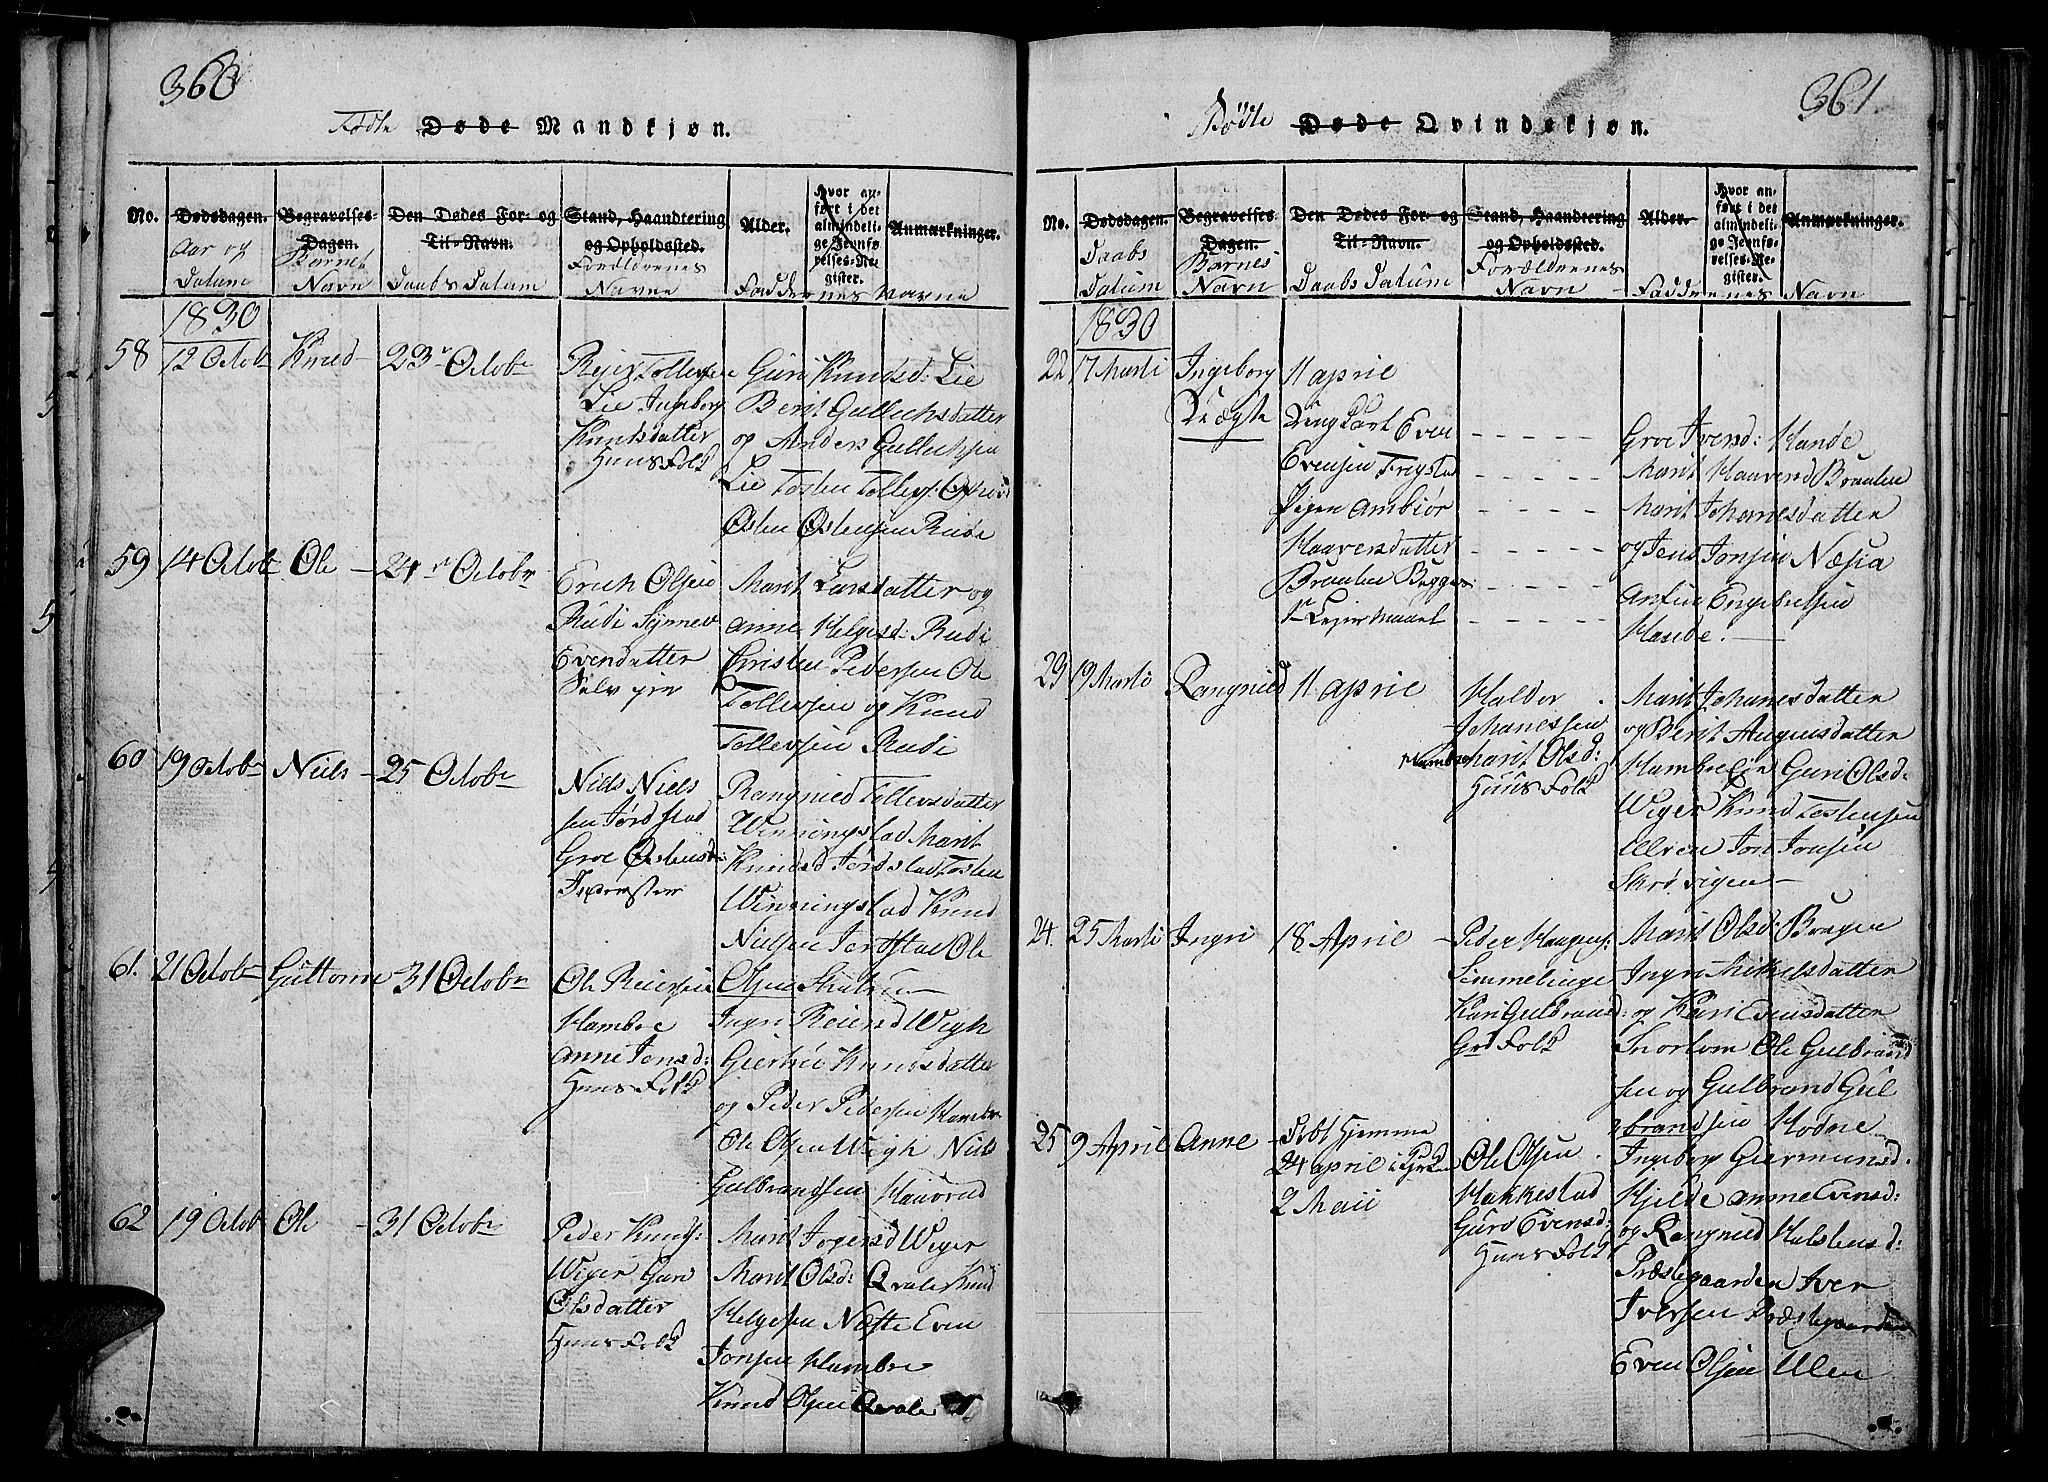 360
Fødte Døde Mandkjøn.
No.
Dødsdagen.
Aar og
Datum
Begravelses-
Dagen.
Barnets
Navn
Den Dødes For- og
Til-Navn.
Daabs Datum
Stand, Haandtering
og Opholdssted.
Forældrenes
Navne
Alder.
Hvor an-
ført i det
almindeli-
ge Jevnfø-
relses-Re-
gister.
Anmærkninger.
Faddernes Navne
1830
58 12 Octob Knud 23 Octobr
Lie Ingeborg
Knutsdatter
Huus Folk
Guri Knudsd: Lie
Berit Gullichsdatter
og Anders Gullichsen
Lie Tosten Tollevs:
Østen Østensen Rudi
59 14 Octob Ole 24 Octobr
Erich Olsen
Rudi Synnev
Evensdatter
Marit Larsdatter og
Anne Helgesd: Rudi
Christen Pedersen Ole
Tollevsen og Knud
Tollevsen Rudi
60 19 Octobr Niels 25 Octobr
Niels Niels
sen Jørdstad
Groe Østensd:
Rangnied Tollevsdatter
Winningstad Marit
Knudsd Jørdstad Tosten
Winningstad Knud
Nielsen Jordstad Ole
Olsen
61. 21 Octobr Guttorm 31 Octobr
Ole Reiersen
Hambre
Anne Jensd:
Huus Folk
Ingri Reiersd Wigh
Giertru Knudsdatter
og Peder Pedersen Hambre
Ole Olsen Wigh Niels
Gulbrandsen Haavrud
62 19 Octob Ole 31 Octobr
Peder Knuds:
Wiger Guri
Olsdatter
Huus Folk
Marit Jogensd Wiger
Marit Olsd: Qvale Knud
Helgesen Næste Even
Jonsen Hambre
Knud Olsen Qvale
361.
Fødte Døde Qvindekjøn.
No.
Dødsdagen.
Daabs
Datum
Begravelses-
Dagen.
Barnes
Navn
Den Dødes For- og
Til-Navn.
Daabs Datum
Stand, Haandtering
og Opholdssted.
Forældrenes
Navn
Alder.
Hvor an-
ført i det
almindeli-
ge Jevnfø-
relses-Re-
gister.
Anmærkninger.
Faddrenes Navn
1830
22 17 Marti Ingeborg 11 april
Uægte
Ung Karl Even
Evensen
Pigen Ambiør
Haaversdatter
Braaten Begges
1ste Leiermaael
Groe Iversd: Hande
Marit Haaversd Braaten
Marit Johanesdatter
og Jens Jonsen Næsia
Anfin Engebretsen
Hande.
23 19 Marti Rangnied 11 april
Haldor
Johanessen
Hambre Marit Olsd:
Huus Folk
Marit Johanesdatter
og Berit Augunsdatter
Hambre Guri Olsd:
Wiger Knud Tostensen
Ulven Jon Jonsen
Skrøvigen
24. 25 Marti Ingri 18 April
Peder Haagens:
Simmelinge
Kari Gulbrandsd:
Grd Folk
Marit Olsd: Bragen
Ingri Mikkelsdatter
og Kari Evensdatter
Ole Gulbrand
sen og Gulbrand Gul
brandsen Hodne
25 9 April Anne
Døbt Hjemme
24 april i Kirken
2 Maii
Ole Olsen
Hakkestad
Guro Evensd:
Huus Folk
Ingeborg Giermunsd.
Hjelde Anne Evensd:
og Rangnied Halstensd:
Præstegaarden Iver
Iversen Præstegaarden
Even Olsen Ulen